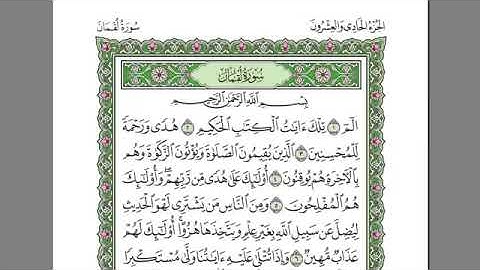 سُورَةُ لُقْمَانَ الجُزْءُ الحَادِي وَالعِشْرُونَ
سُورَةُ لُقْمَانَ
بِسْمِ اللَّهِ الرَّحْمَٰنِ الرَّحِيمِ
الٓمٓ ١ تِلْكَ ءَايَٰتُ الْكِتَٰبِ الْحَكِيمِ ٢ هُدًى وَرَحْمَةً
لِّلْمُحْسِنِينَ ٣ الَّذِينَ يُقِيمُونَ الصَّلَوٰةَ وَيُؤْتُونَ الزَّكَوٰةَ وَهُم
بِالْءَاخِرَةِ هُمْ يُوقِنُونَ ٤ أُو۟لَٰٓئِكَ عَلَىٰ هُدًى مِّن رَّبِّهِمْ وَأُو۟لَٰٓئِكَ
هُمُ الْمُفْلِحُونَ ٥ وَمِنَ النَّاسِ مَن يَشْتَرِى لَهْوَ الْحَدِيثِ
لِيُضِلَّ عَن سَبِيلِ اللَّهِ بِغَيْرِ عِلْمٍ وَيَتَّخِذَهَا هُزُوًا أُو۟لَٰٓئِكَ لَهُمْ
عَذَابٌ مُّهِينٌ ٦ وَإِذَا تُتْلَىٰ عَلَيْهِ ءَايَٰتُنَا وَلَّىٰ مُسْتَكْبِرًا